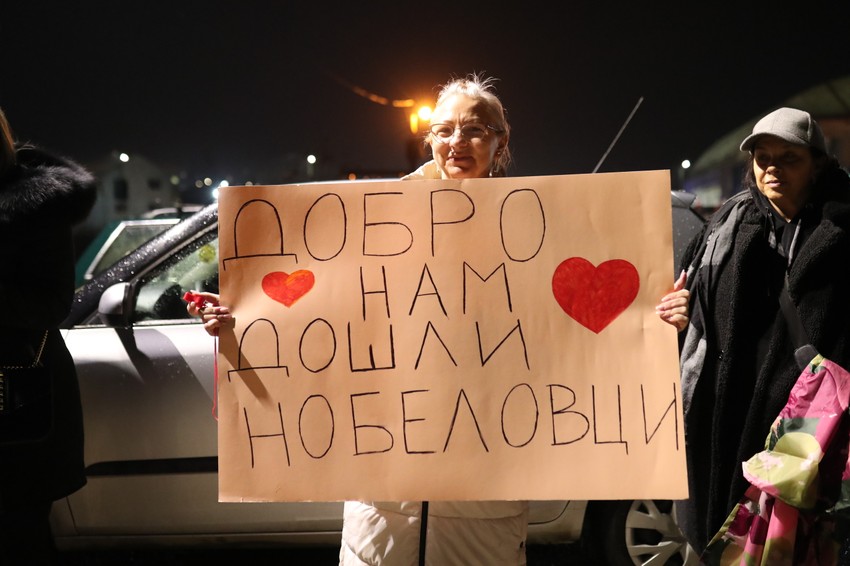 ДОБРО
НАМ
ДОШЛИ
НОБЕЛОВЦИ